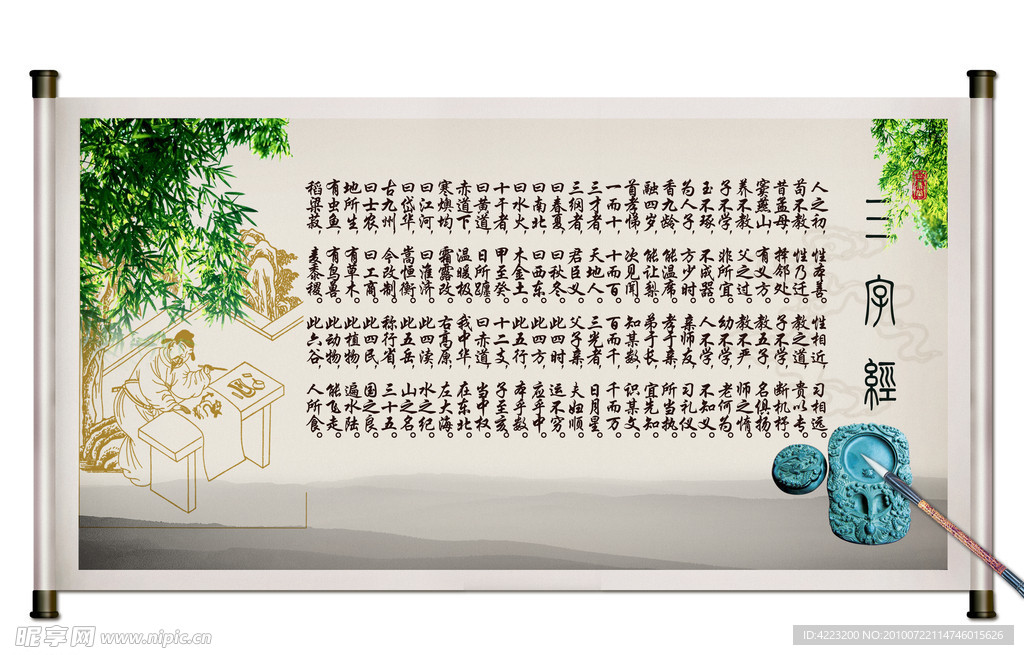 三字經
人之初，性本善。性相近，习相远。
苟不教，性乃迁。教之道，贵以专。
昔孟母，择邻处。子不学，断机杼。
窦燕山，有义方。教五子，名俱扬。
养不教，父之过。教不严，师之惰。
子不学，非所宜。幼不学，老何为。
玉不琢，不成器。人不学，不知义。
为人子，方少时。亲师友，习礼仪。
香九龄，能温席。孝于亲，所当执。
融四岁，能让梨。弟于长，宜先知。
首孝悌，次见闻。知某数，识某文。
一而十，十而百。百而千，千而万。
三才者，天地人。三光者，日月星。
三纲者，君臣义。父子亲，夫妇顺。
曰春夏，曰秋冬。此四时，运不穷。
曰南北，曰西东。此四方，应乎中。
曰水火，木金土。此五行，本乎数。
十干者，甲至癸。十二支，子至亥。
曰黄道，日所躔。曰赤道，当中权。
赤道下，温暖极。我中华，在东北。
寒燠均，霜露改。右高原，左大海。
曰江河，曰淮济。此四渎，水之纪。
曰岱华，嵩恒衡。此五岳，山之名。
古九州，今改制。称行省，三十五。
曰士农，曰工商。此四民，国之良。
地所生，有草木。此植物，遍水陆。
有虫鱼，有鸟兽。此动物，能飞走。
稻粱菽，麦黍稷。此六谷，人所食。
昵享网 www.nipic.cn
ID:4223200 NO:20100722114746015626